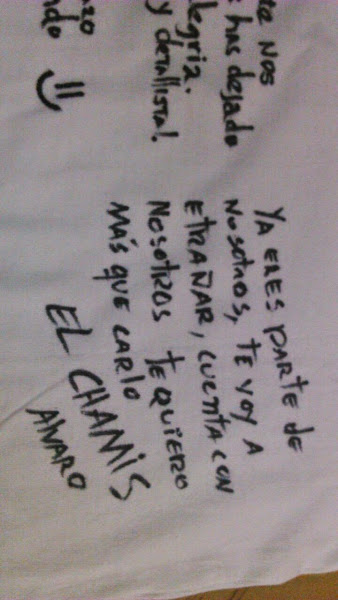 nos
has dejado
alegria.
y detallista!
YA ERES PARTE DE
NOSOTROS, TE VOY A
ETRAÑAR, CUENTA CON
NOSOTROS TE QUIERO
MÁS QUE CARLO
EL CHAMIS
AMARO